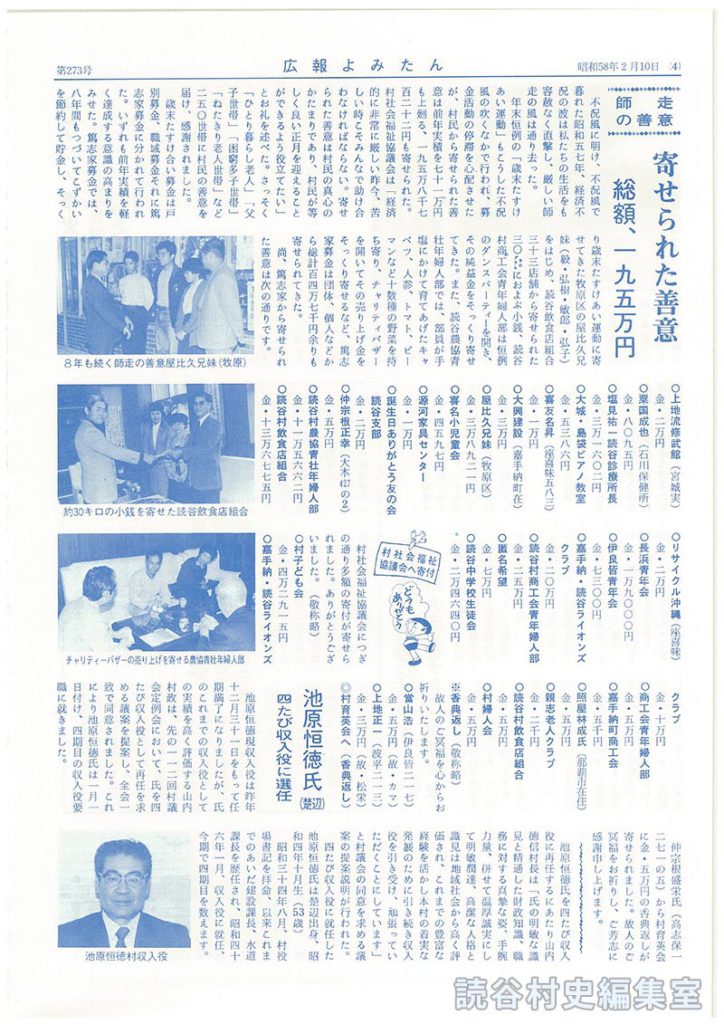 第273号
広報よみたん
昭和58年2月10日 (4)
師走の善意
寄せられた善意
総額、一九五万円
不況風に明け、不況風で
暮れた昭和五七年、経済不
況の波は私たちの生活をも
容赦なく直撃し、厳しい師
走の風は通り去った。
年末恒例の「歳末たすけ
あい運動」もこうした不況
風の吹くなかで行われ、募
金活動の停滞を心配させた
が、村民から寄せられた善
意は前年実績を七十一万円
も上廻る、一九五万八千七
百二十二円も寄せられた。
村社会福祉協議会は「経済
的に非常に厳しい昨今、苦
しい時こそみんなで助け合
わなければならない。寄せ
られた善意は村民の真心の
かたまりであり、村民が等
しく良い正月を迎えること
ができるよう役立てたい」
とお礼を述べた。さっそく
「ひとり暮らし老人」「父
子世帯」「困窮多子世帯」
「ねたきり老人世帯」など
二五〇世帯に村民の善意を
届け、感謝されました。
歳末たすけ合い募金は戸
別募金、職域募金それに篤
志家募金に分かれて行われ
た。いずれも前年実績を軽
く達成する意識の高まりを
みせた。篤志家募金では、
八年間もつづいてこずかい
を節約して貯金し、そっく
り歳末たすけあい運動に寄
せてきた牧原区の屋比久兄
妹(毅・弘樹・敏郎・弘子)
をはじめ、読谷飲食店組合
三十三店舗から寄せられた
三〇㌔におよぶ小銭、読谷
村商工会青年婦人部は恒例
のダンスパーティーを開き、
その純益金をそっくり寄せ
てきた。また、読谷農協青
壮年婦人部では、部員が手
塩にかけて育てあげたキャ
ベツ、人参、トマト、ピー
マンなど十数種の野菜を持
ち寄り、チャリティバザー
を開いてその売り上げ金を
そっくり寄せるなど、篤志
家募金は団体、個人などか
ら総計百四万七千円余りも
寄せられてきた。
尚、篤志家から寄せられ
た善意は次の通りです。
8年も続く師走の善意屋比久兄妹(牧原)
○上地流修武館(宮城実)
金・二万円
○粟国成也(石川保健所)
金・八〇九五円
○塩見祐一読谷診療所長
金・三万一六〇二円
○大城・島袋ピアノ教室
金・五三八六円
○喜友名昇(座喜味五八三)
金・一万円
○大興建設(嘉手納町在)
金・五万円
○屋比久兄妹(牧原区)
金・三万八九二一円
○喜名小児童会
金・四五九七円
○源河家具センター
金・二万円
○誕生日ありがとう友の会
読谷支部
金・二万円
○仲宗根正幸(大木427の2)
金・五万円
○読谷村農協青壮年婦人部
金・十一万五六六二円
○読谷村飲食店組合
金・十三万六七七五円
約30キロの小銭を寄せた読谷飲食店組合
○リサイクル沖縄(座喜味)
金・二万円
○長浜青年会
金・一万九〇〇〇円
○伊良皆青年会
金・七三〇〇円
○嘉手納・読谷ライオンズ
クラブ
金・二〇万円
○読谷村商工会青年婦人部
金・二五万円
○匿名希望
金・七万円
○読谷中学校生徒会
金・二万四六四〇円
村社会福祉
協議会へ寄付
どうも
ありがとう
村社会福祉協議会につぎ
の通り多額の寄付が寄せら
れました。ありがとうござ
いました。(敬称略)
○村子ども会
金・四万二九一五円
○嘉手納・読谷ライオンズ
チャリティーバザーの売り上げを寄せる農協青壮年婦人部
クラブ
金・十万円
○商工会青年婦人部
金・五万円
○嘉手納町商工会
金・五万円
○照屋林成氏(那覇市在住)
金・五万円
○親志老人クラブ
金・二千円
○読谷村飲食店組合
金・五万円
○村婦人会
金・五万円
※香典返し(敬称略)
故人のご冥福を心からお
祈りいたします。
○當山浩(伊良皆二一七)
金・五万円(故・カマ)
○上地正一(波平二一三)
金・三万円(故・松栄)
◎村育英会へ(香典返し)
仲宗根盛栄氏(高志保一
二七一の五)から村育英会
に金・五万円の香典返しが
寄せられました。故人のご
冥福をお祈りし、ご芳志に
感謝申し上げます。
池原恒徳氏(楚辺)
四たび収入役に選任
池原恒徳現収入役は昨年
十二月三十一日をもって任
期満了になりましたが、氏
のこれまでの収入役として
の実績を高く評価する山内
村政は、先の一一二回村議
会定例会において、氏を四
たび収入役として再任を求
める議案を提案し、全会一
致で同意されました。これ
により池原恒徳氏は一月一
日付け、四期目の収入役要
職に就きました。
池原恒徳氏を四たび収入
役に再任するにあたり山内
徳信村長は「氏の明敏な識
見と精通した財政知識、職
務に対する真摯な姿、手腕
力量、併せて温厚誠実にし
て明敏闊達、高潔な人格と
識見は地域社会から高く評
価され、これまでの豊富な
経験を活かし本村の着実な
発展のために引き続き収入
役を引き受け、頑張ってい
ただくことにしています」
と村議会の同意を求める議
案の提案説明が行われた。
四たび収入役に就任した
池原恒徳氏は楚辺出身、昭
和四年十月生(53歳)
昭和三十四年八月、村役
場書記を拝命、以来これま
でのあいだ建設課長、水道
課長を歴任され、昭和四十
六年一月、収入役に就任、
今期で四期目を数えます。
池原恒徳村収入役
読谷村史編集室